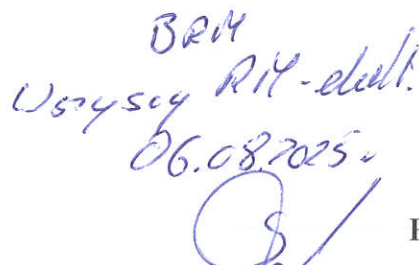 BRM
Wszyscy RM-elekt.
06.08.2025.